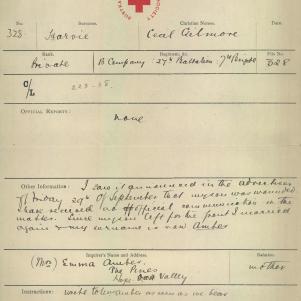 No.
Surname.
Christian Names.
328
Harvie
Cecil Gilmore
Rank.
Regiment, &c.
File No
Private
B Company 27th Battalion 7th Brigade
328
C/L
223-28.
OFFICIAL REPORTS:
None
Other Information: I saw it announced in the advertiser
of Friday 29th of September that my son was wounded
I have received no official communication in the
matter. Since my son left for the front I married
again & my surname is now Amber
Inquirer's Name and Address.
Relation.
(Mrs) Emma Amber
mother
The Pines
Hope Valley
Instructions: write to Mrs Amber as soon as we hear